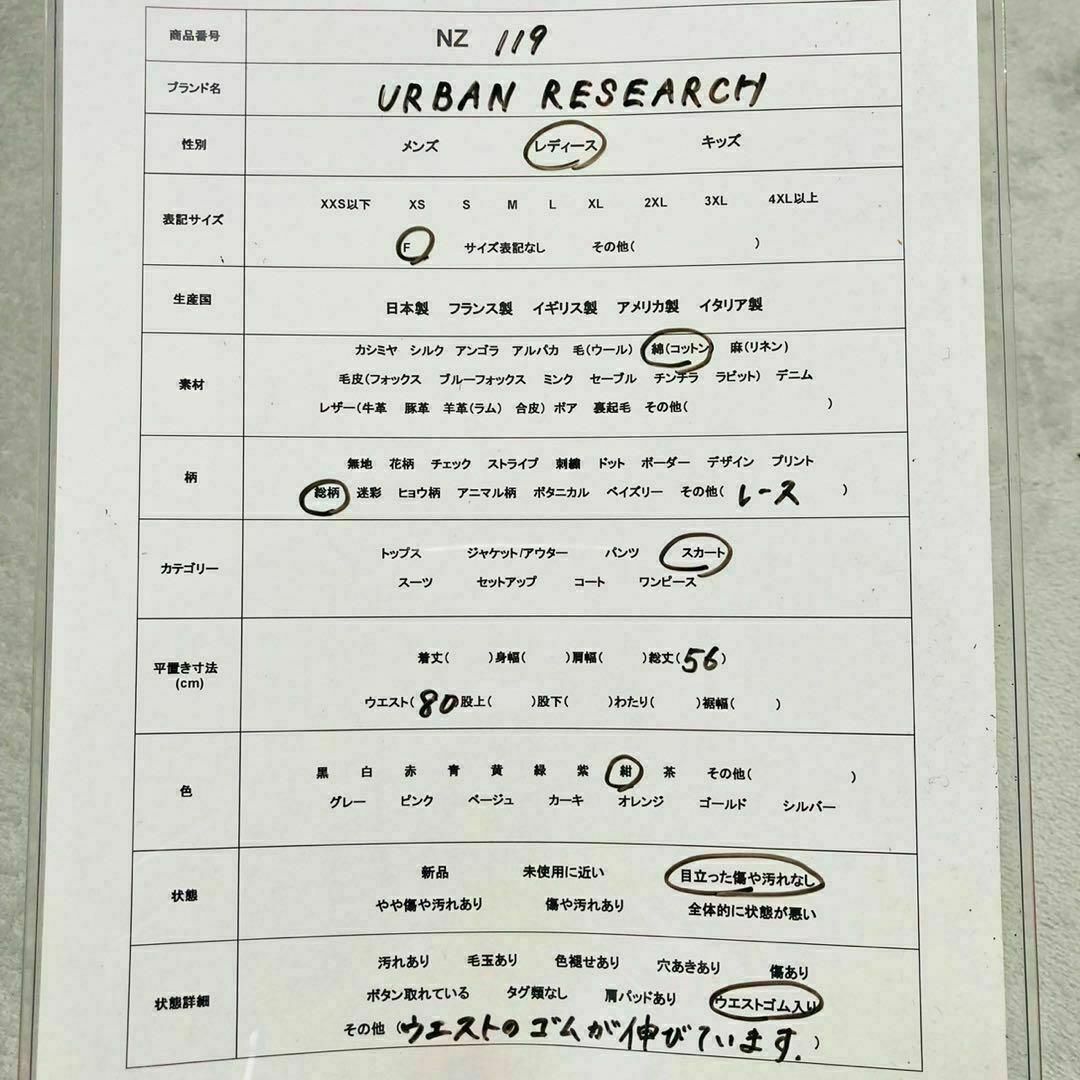 商品番号 NZ 119
ブランド名 URBAN RESEARCH
性別 メンズ レディース キッズ
表記サイズ XXS以下 XS S M L XL 2XL 3XL 4XL以上
F サイズ表記なし その他( )
生産国 日本製 フランス製 イギリス製 アメリカ製 イタリア製
素材 カシミヤ シルク アンゴラ アルパカ 毛(ウール) 綿(コットン) 麻(リネン)
毛皮(フォックス ブルーフォックス ミンク セーブル チンチラ ラビット) デニム
レザー(牛革 豚革 羊革(ラム) 合皮) ボア 裏起毛 その他( )
柄 無地 花柄 チェック ストライプ 刺繍 ドット ボーダー デザイン プリント
総柄 迷彩 ヒョウ柄 アニマル柄 ボタニカル ペイズリー その他( レース )
カテゴリー トップス ジャケット/アウター パンツ スカート
スーツ セットアップ コート ワンピース
平置き寸法 (cm) 着丈( )身幅( )肩幅( )総丈(56)
ウエスト(80)股上( )股下( )わたり( )裾幅( )
色 黒 白 赤 青 黄 緑 紫 紺 茶 その他( )
グレー ピンク ベージュ カーキ オレンジ ゴールド シルバー
状態 新品 未使用に近い 目立った傷や汚れなし
やや傷や汚れあり 傷や汚れあり 全体的に状態が悪い
状態詳細 汚れあり 毛玉あり 色褪せあり 穴あきあり 傷あり
ボタン取れている タグ類なし 肩パッドあり ウエストゴム入り
その他 (ウエストのゴムが伸びています.)